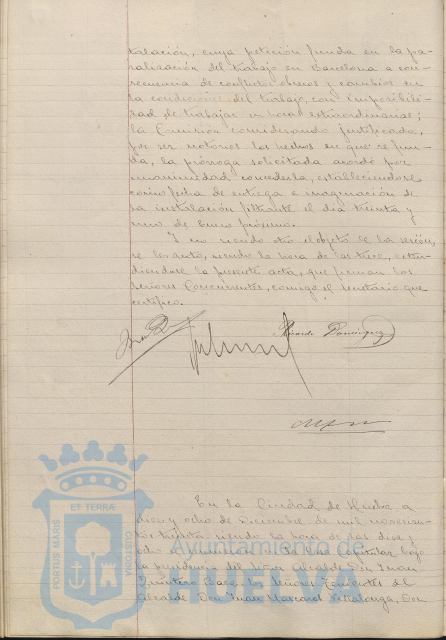 talación, cuya petición funda en la pa-
ralización del trabajo en Barcelona a con-
secuencia de conflictos obreros y cambios en
la condiciones del trabajo, con imposibili-
dad de trabajar en horas extraordinarias;
la Comisión considerando justificada,
por ser notorios los hechos en que se fun-
da, la prórroga solicitada acordó por
unanimidad concederla, estableciendose
como fecha de entrega e inauguración de
la instalación filtrante el dia treinta y
uno de Enero próximo.
Y no siendo otro el objeto de la sesión,
se levantó, siendo la hora de las trece, exten-
diendose la presente acta, que firman los
Señores Concurrentes, conmigo el secretario que
certifico.
Ricardo Dominguez
En la Ciudad de Huelva a
diez y ocho de Diciembre de mil novecien-
tos treinta siendo la hora de las diez y
ocho Capitular bajo
la presidencia del Señor Alcalde Don Juan
Quintero Baez, los Señores Tenientes de
Alcalde Don Juan Mascaros Don
PORTUS MARIS ET TERRÆ CUSTODIO
Ayuntamiento de
HUELVA